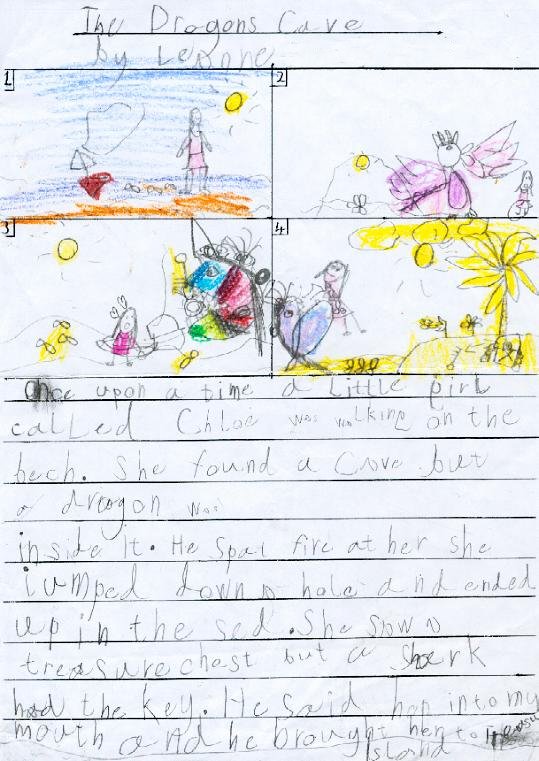 The Dragons Cave
by Leonne
1
2
3
4
Once upon a time a Little girl
called Chloe was walking on the
bech. She found a Cove but
a dragon was
inside it. He Spat fire at her she
jumped down a hole and ended
up in the sea. She saw a
treasure chest but a Shark
had the key. He Said hop into my
mouth and he brought her to Treasure
Island